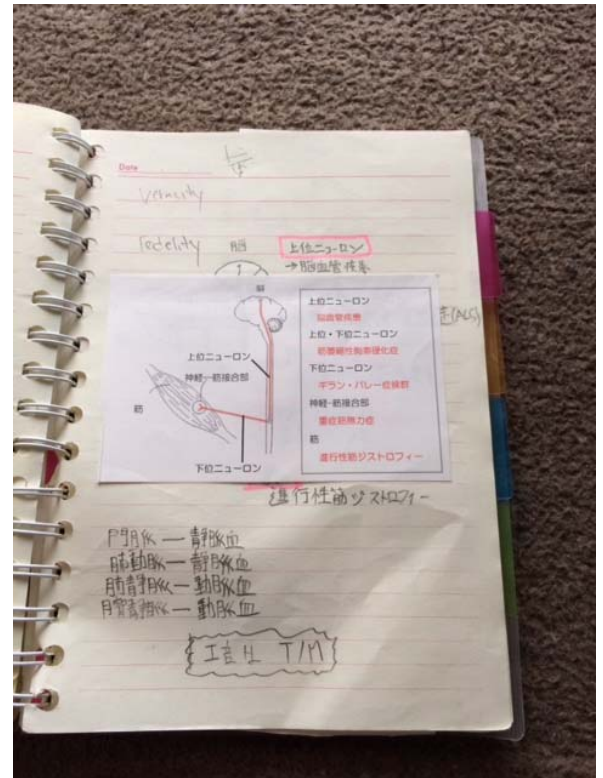 Date
Veracity
Fedelity
脳
上位ニューロン
→脳血管疾患
(ALS)
脳
上位ニューロン
神経―筋接合部
筋
下位ニューロン
上位ニューロン
脳血管疾患
上位・下位ニューロン
筋萎縮性側索硬化症
下位ニューロン
ギラン・バレー症候群
神経-筋接合部
重症筋無力症
筋
進行性筋ジストロフィー
進行性筋ジストロフィー
門脈―静脈血
肺動脈―静脈血
肺静脈―動脈血
臍静脈―動脈血
T/M